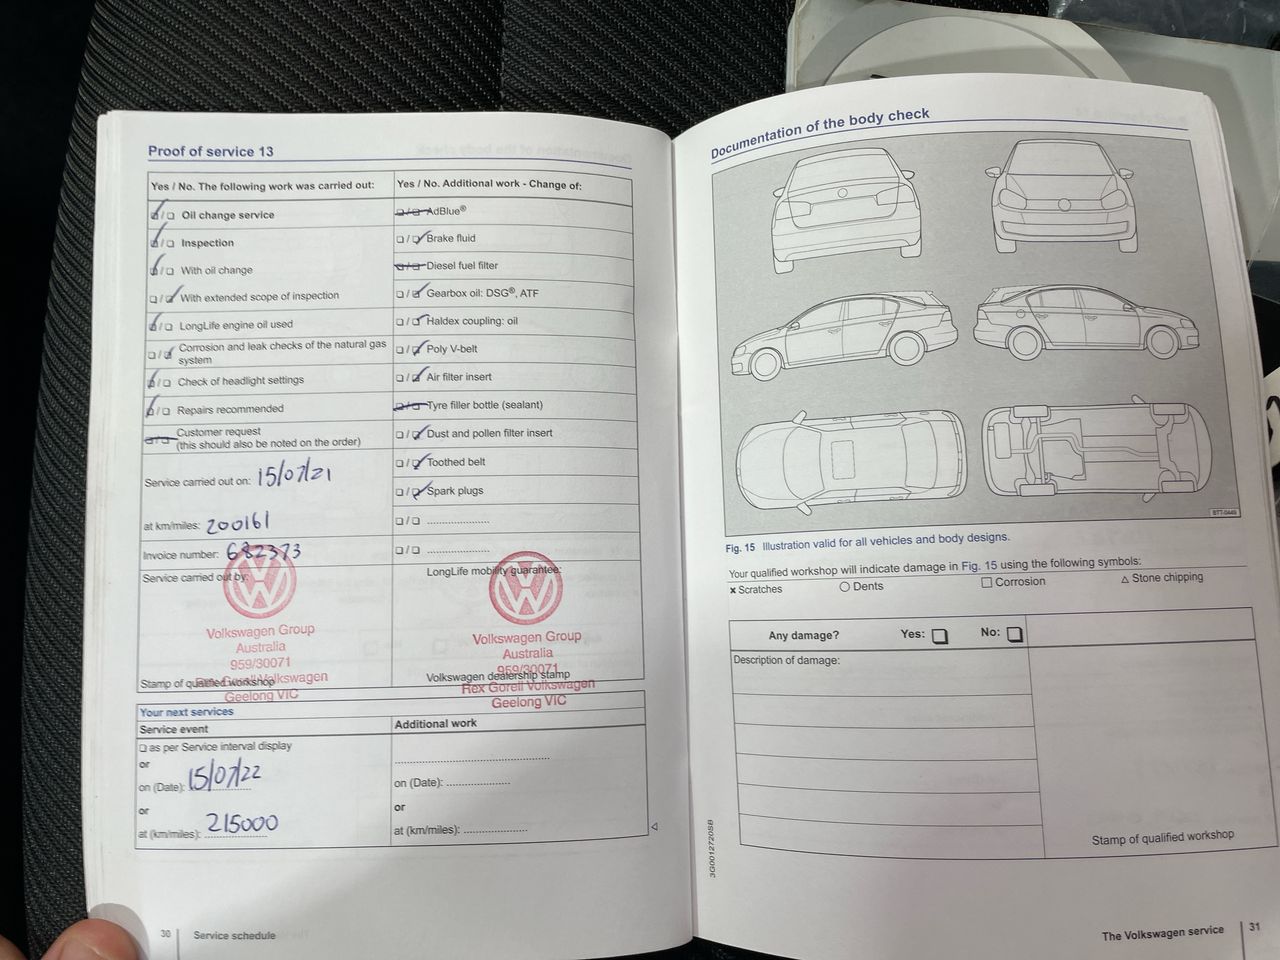 Proof of service 13
Yes / No. The following work was carried out:
Oil change service
Inspection
With oil change
With extended scope of inspection
LongLife engine oil used
Corrosion and leak checks of the natural gas
system
Check of headlight settings
Repairs recommended
Customer request
(this should also be noted on the order)
Service carried out on: 15/07/21
at km/miles: 200161
Invoice number: 682373
Service carried out by:
Volkswagen Group
Australia
959/30071
Rex Gorell Volkswagen
Geelong VIC
Stamp of qualified workshop
Yes / No. Additional work - Change of:
AdBlue®
Brake fluid
Diesel fuel filter
Gearbox oil: DSG®, ATF
Haldex coupling: oil
Poly V-belt
Air filter insert
Tyre filler bottle (sealant)
Dust and pollen filter insert
Toothed belt
Spark plugs
LongLife mobility guarantee:
Volkswagen Group
Australia
959/30071
Volkswagen dealership stamp
Rex Gorell Volkswagen
Geelong VIC
Your next services
Service event
as per Service interval display
or
on (Date): 15/07/22
or
at (km/miles): 215000
Additional work
on (Date):
or
at (km/miles):
30 Service schedule
Documentation of the body check
BTT-0449
Fig. 15 Illustration valid for all vehicles and body designs.
Your qualified workshop will indicate damage in Fig. 15 using the following symbols:
x Scratches O Dents □ Corrosion △ Stone chipping
Any damage? Yes: No:
Description of damage:
Stamp of qualified workshop
3G0012720SB
The Volkswagen service 31